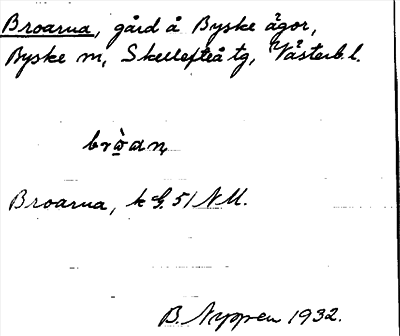 Broarna, gård å Byske ägor,
Byske sn, Skellefteå tg, Västerb. l.
Broarna, k G. 51 NM.
B. Nygren 1932.